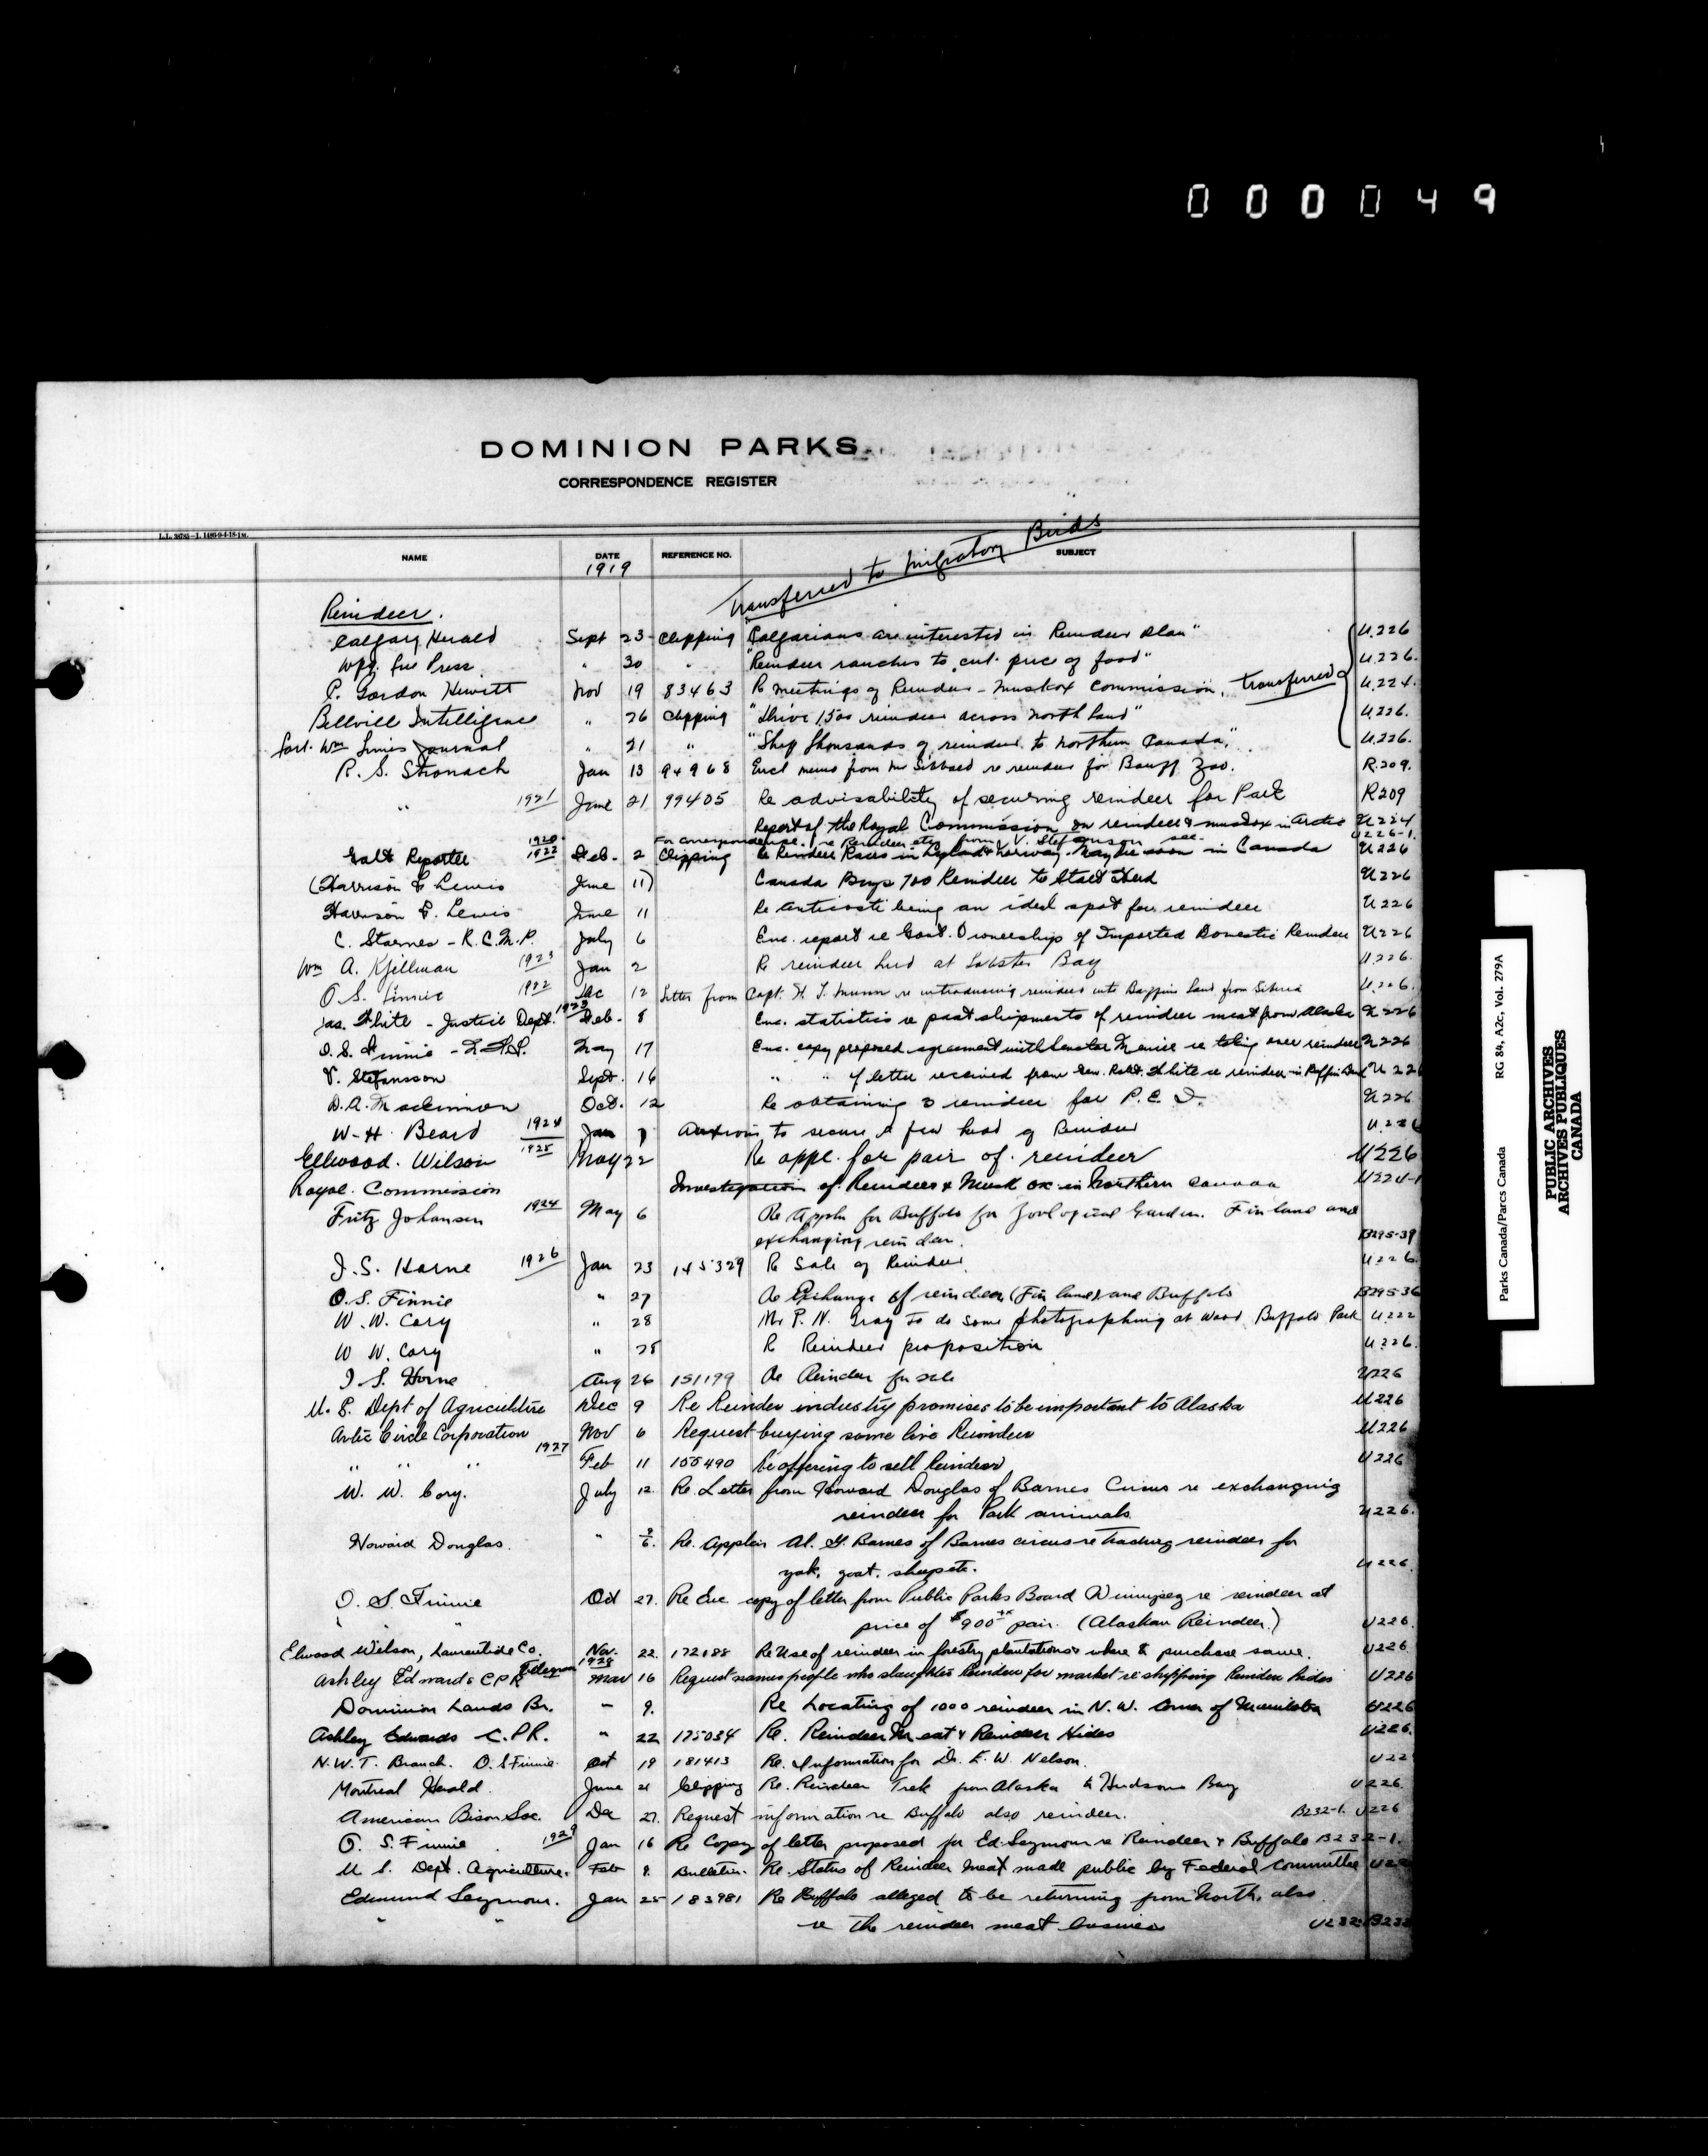 000049
DOMINION PARKS
CORRESPONDENCE REGISTER
NAME DATE REFERENCE NO. SUBJECT
1919
Transferred to Migratory Birds
Reindeer.
Calgary Herald Sept 23 Clipping "Calgarians are interested in Reindeer plan" U.226
Wpg. Free Press " 30 " "Reindeer ranches to cut price of food" U.226.
C. Gordon Hewitt Nov 19 83463 Re meetings of Reindeer - Muskox Commission. transferred U.224.
Bellvill Intelligence " 26 Clipping "Drive 1500 reindeer across north land" U.226.
Fort Wm Times Journal " 21 " "Ship thousands of reindeer to northern Canada." U.226.
R. S. Stronach Jan 13 94968 Encl memo from Mr Sibbald re reindeer for Banff Zoo. R.209.
" 1921 June 21 99405 Re advisability of securing reindeer for Park R209
Report of the Royal Commission on reindeer & muskox in Arctic U224
For correspondence re Reindeer etc from V. Stefansson see U226-1.
1920
Galt Reporter 1922 Feb. 2 Clipping Re Reindeer Races in Lapland & Norway. May be soon in Canada U226
(Harrison F. Lewis June 11) Canada Buys 700 Reindeer to Start Herd U226
Harrison F. Lewis June 11 Re Anticosti being an ideal spot for reindeer U226
C. Starnes - R.C.M.P. July 6 Enc. report re Govt. Ownership of Imported Domestic Reindeer U226
Wm A. Kjellman 1923 Jan 2 Re reindeer herd at Lobster Bay U.226.
O S. Finnie 1922 Dec 12 Letter from Capt. H. T. Munn re introducing reindeer into Baffins Land from Siberia U.226.
Jas. White - Justice Dept. 1923 Feb. 8 Enc. statistics re past shipments of reindeer meat from Alaska U226
O. S. Finnie May 17 Enc. copy proposed agreement with Senator re taking over reindeer U226
V. Stefansson Sept. 16 " " of letter received from Gen. Robt. White re reindeer in Baffin Land U 226
D. A. Mackinnon Oct. 12 Re obtaining 3 reindeer for P. E. I. U226
W. H. Beard 1924 Jan 7 Anxious to secure a few head of Reindeer U.226
Ellwood. Wilson 1925 May 22 Re appl. for pair of reindeer U226
Royal. Commission Investigation of Reindeer & Musk Ox in Northern Canada U224-1
Fritz Johansen 1924 May 6 Re Appln for Buffalo for Zoological Garden. Finland and
exchanging reindeer. B295-39
I. S. Horne 1926 Jan 23 145329 Re Sale of Reindeer U226.
O. S. Finnie " 27 Re Exchange of reindeer (Finland) and Buffalo B295-36
W. W. Cory " 28 Mr P. N. Gray to do some photographing at Wood Buffalo Park U.222
W W. Cory " 28 Re Reindeer proposition U.226.
I S. Horne Aug 26 151199 Re Reindeer for sale U226
U. S. Dept of Agriculture Dec 9 Re Reindeer industry promises to be important to Alaska U226
Artic Circle Corporation Nov 6 Request buying some live Reindeer U226
" " " 1927 Feb 11 155490 Re offering to sell Reindeer U226
W. W. Cory. July 12 Re. Letter from Howard Douglas of Barnes Circus re exchanging
reindeer for Park animals U226.
Howard Douglas. " 6. Re. Appln Al. G. Barnes of Barnes circus re trading reindeer for
yak, goat, sheep etc. U226
O. S. Finnie Oct 27. Re Enc. copy of letter from Public Parks Board Winnipeg re reindeer at
price of $900 pair. (Alaskan Reindeer.) U226
Elwood Wilson, Laurentide Co. Nov. 22. 172188 Re Use of reindeer in forestry plantations & where to purchase same. U226
Ashley Edwards C P R Telegram 1928 Mar 16 Request names people who slaughter Reindeer for market re shipping Reindeer hides U226
Dominion Lands Br. " 9. Re Locating of 1000 reindeer in N. W. Corner of Manitoba U226
Ashley Edwards C. P. R. " 22 175034 Re. Reindeer Meat & Reindeer Hides U226.
N.W.T. Branch. O. S Finnie Oct 19 181413 Re. Information for Dr. E. W. Nelson. U22
Montreal Herald. June 21 Clipping Re. Reindeer Trek from Alaska to Hudsons Bay U226.
American Bison Soc. Dec 27. Request information re Buffalo also reindeer. B232-1. U226
O. S. Finnie 1929 Jan 16 Re Copy of letter proposed for Ed. Seymour re Reindeer & Buffalo B232-1.
U S. Dept. Agriculture. Feb 8. Bulletin. Re. Status of Reindeer Meat made public by Federal Committee
Edmund Seymour. Jan 25 183981 Re Buffalo alleged to be returning from North, also
" " re the reindeer meat business U232. B232
Parks Canada/Parcs Canada RG 84, A2c, Vol. 279A
PUBLIC ARCHIVES
ARCHIVES PUBLIQUES
CANADA